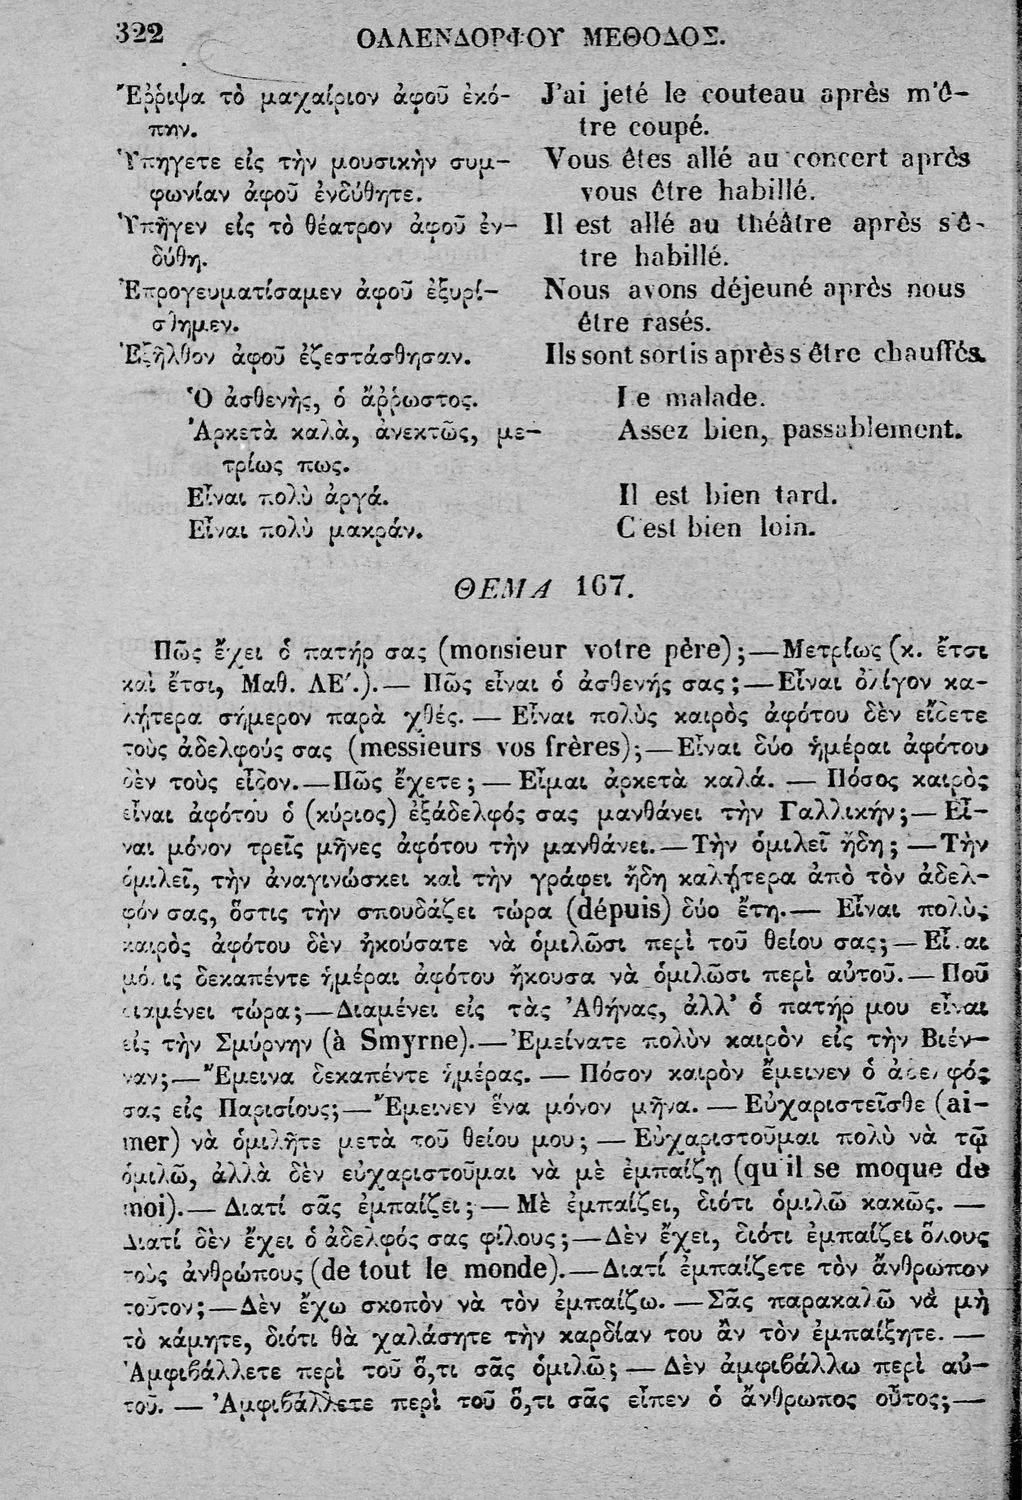 322 ΟΛΛΕΝΔΟΡΦΟΥ ΜΕΘΟΔΟΣ.
Ἔῤῥιψα τὸ μαχαίριον ἀφοῦ ἐκό-
πην.
Ὑπηγετε εἰς τὴν μουσικὴν συμ-
φωνίαν ἀφοῦ ἐνδύθητε.
Ὑπῆγεν εἰς τὸ θέατρον ἀφοῦ ἐν-
δύθη.
Ἐπρογευματίσαμεν ἀφοῦ ἐξυρί-
σθημεν.
Ἐξῆλθον ἀφοῦ ἐζεστάσθησαν.
J'ai jeté le couteau après m'ê-
tre coupé.
Vous êtes allé au concert après
vous être habillé.
Il est allé au théâtre après s'ê-
tre habillé.
Nous avons déjeuné après nous
être rasés.
Ils sont sortis après s être chauffés.
Ὁ ἀσθενὴς, ὁ ἄῤῥωστος.
Ἀρκετὰ καλὰ, ἀνεκτῶς, με-
τρίως πως.
Εἶναι πολὺ ἀργά.
Εἶναι πολὺ μακράν.
Le malade.
Assez bien, passablement.
Il est bien tard.
C'est bien loin.
ΘΕΜΑ 167.
Πῶς ἔχει ὁ πατήρ σας (monsieur votre père);—Μετρίως (κ. ἔτσι
καὶ ἔτσι, Μαθ. ΛΕ'.).— Πῶς εἶναι ὁ ἀσθενής σας;—Εἶναι ὀλίγον κα-
λήτερα σήμερον παρὰ χθές. — Εἶναι πολὺς καιρὸς ἀφότου δὲν εἴδετε
τοὺς ἀδελφούς σας (messieurs vos frères);—Εἶναι δύο ἡμέραι ἀφότου
δὲν τοὺς εἶδον.—Πῶς ἔχετε;— Εἶμαι ἀρκετὰ καλά. — Πόσος καιρὸς
εἶναι ἀφότου ὁ (κύριος) ἐξάδελφός σας μανθάνει τὴν Γαλλικήν;— Εἶ-
ναι μόνον τρεῖς μῆνες ἀφότου τὴν μανθάνει.—Τὴν ὁμιλεῖ ἤδη; —Τὴν
ὁμιλεῖ, τὴν ἀναγινώσκει καὶ τὴν γράφει ἤδη καλήτερα ἀπὸ τὸν ἀδελ-
φόν σας, ὅστις τὴν σπουδάζει τώρα (dépuis) δύο ἔτη.— Εἶναι πολὺς
καιρὸς ἀφότου δὲν ἠκούσατε νὰ ὁμιλῶσι περὶ τοῦ θείου σας;—Εἶναι
μόλις δεκαπέντε ἡμέραι ἀφότου ἤκουσα νὰ ὁμιλῶσι περὶ αὐτοῦ.—Ποῦ
διαμένει τώρα;—Διαμένει εἰς τὰς Ἀθήνας, ἀλλ' ὁ πατήρ μου εἶναι
εἰς τὴν Σμύρνην (à Smyrne).—Ἐμείνατε πολὺν καιρὸν εἰς τὴν Βιέν-
ναν;—Ἔμεινα δεκαπέντε ἡμέρας. — Πόσον καιρὸν ἔμεινεν ὁ ἀδελφός
σας εἰς Παρισίους;—Ἔμεινεν ἕνα μόνον μῆνα. — Εὐχαριστεῖσθε (ai-
mer) νὰ ὁμιλῆτε μετὰ τοῦ θείου μου; — Εὐχαριστοῦμαι πολὺ νὰ τῷ
ὁμιλῶ, ἀλλὰ δὲν εὐχαριστοῦμαι νὰ μὲ ἐμπαίζῃ (qu'il se moque de
moi).— Διατί σᾶς ἐμπαίζει;— Μὲ ἐμπαίζει, διότι ὁμιλῶ κακῶς. —
Διατί δὲν ἔχει ὁ ἀδελφός σας φίλους;—Δὲν ἔχει, διότι ἐμπαίζει ὅλους
τοὺς ἀνθρώπους (de tout le monde).—Διατί ἐμπαίζετε τὸν ἄνθρωπον
τοῦτον;—Δὲν ἔχω σκοπὸν νὰ τὸν ἐμπαίζω. —Σᾶς παρακαλῶ νὰ μὴ
τὸ κάμητε, διότι θὰ χαλάσητε τὴν καρδίαν του ἂν τὸν ἐμπαίξητε. —
Ἀμφιβάλλετε περὶ τοῦ ὅ,τι σᾶς ὁμιλῶ; — Δὲν ἀμφιβάλλω περὶ αὐ-
τοῦ. — Ἀμφιβάλλετε περὶ τοῦ ὅ,τι σᾶς εἶπεν ὁ ἄνθρωπος οὗτος;—